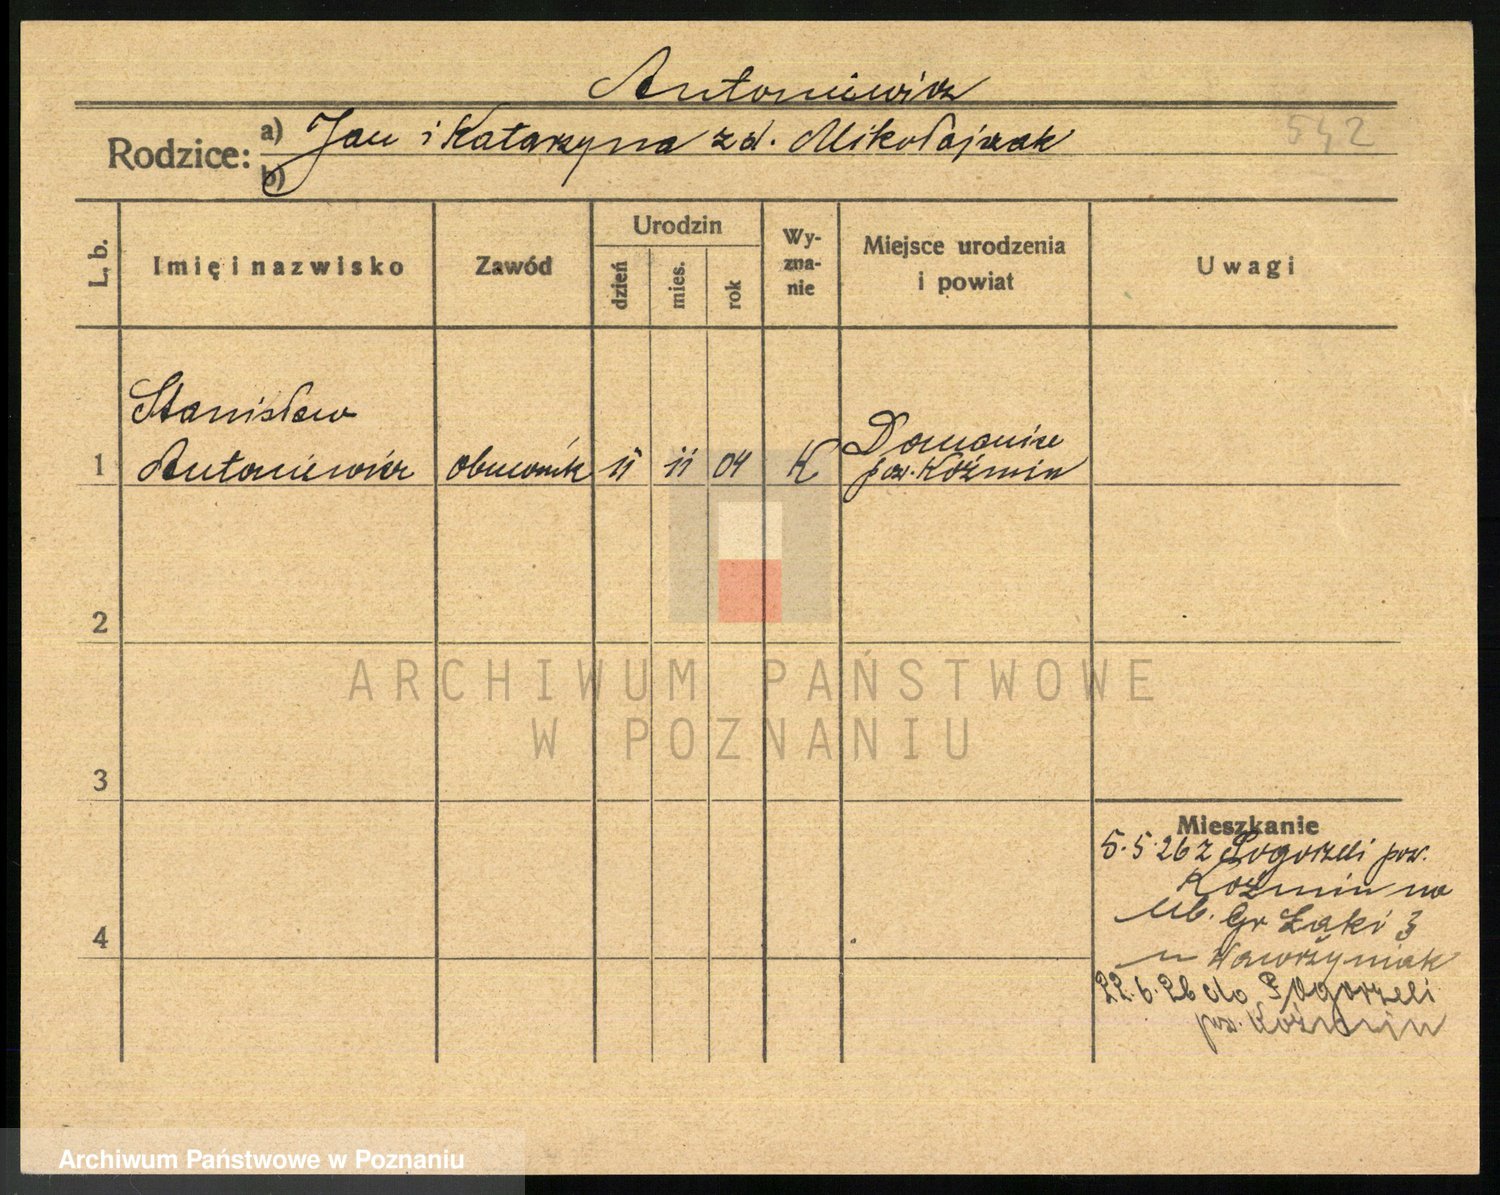 Antoniewicz
Rodzice: a) Jan i Katarzyna z d. Mikołajczak
b)
542
L. b.
Imię i nazwisko
Zawód
Urodzin
dzień
mies.
rok
Wy-
zna-
nie
Miejsce urodzenia
i powiat
Uwagi
Stanisław
1 Antoniewicz obuwnik 11 11 04 K Domanice
pow. Koźmin
2
3
4
Mieszkanie
5.5.26 z Pogorzeli pow.
Koźmin na
Ub. Gr Łąki 3
u Wawrzyniak
22.6.26 do Pogorzeli
pow. Koźmin
ARCHIWUM PAŃSTWOWE
W POZNANIU
Archiwum Państwowe w Poznaniu